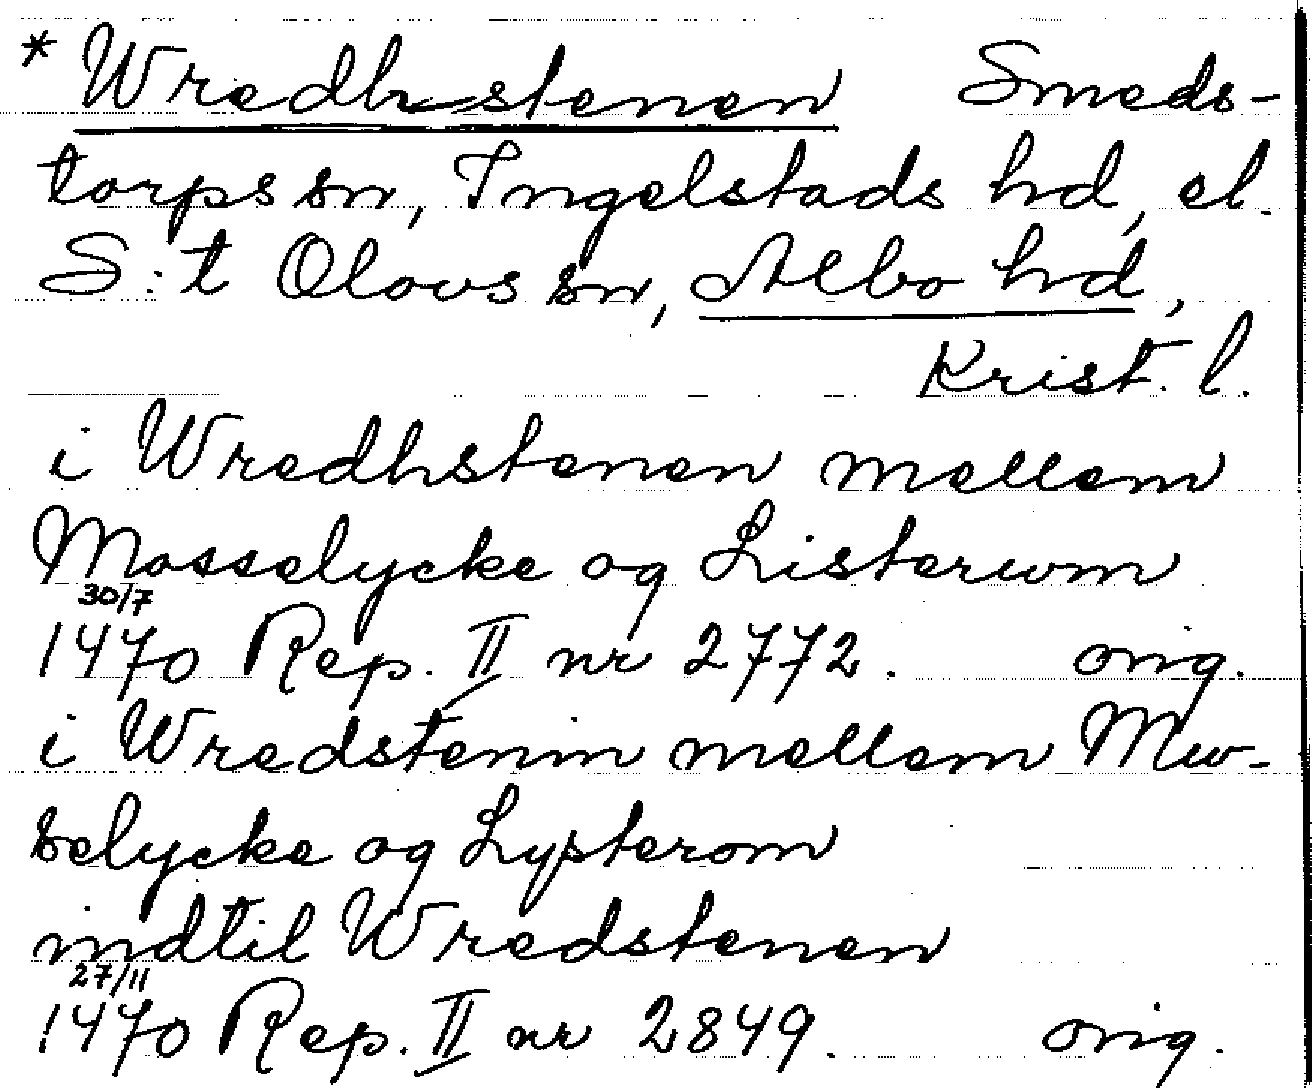 * Wredhstenen Smeds-
torps sn, Ingelstads hd, el.
S:t Olovs sn, Albo hd,
Krist. l.
i Wredhstenen mellem
Mosselycke og Listerwm
30/7
1470 Rep. II nr 2772. orig.
i Wredstenin mellem Mw-
selycke og Lysterom
indtil Wredstenen
27/11
1470 Rep. II nr 2849. orig.